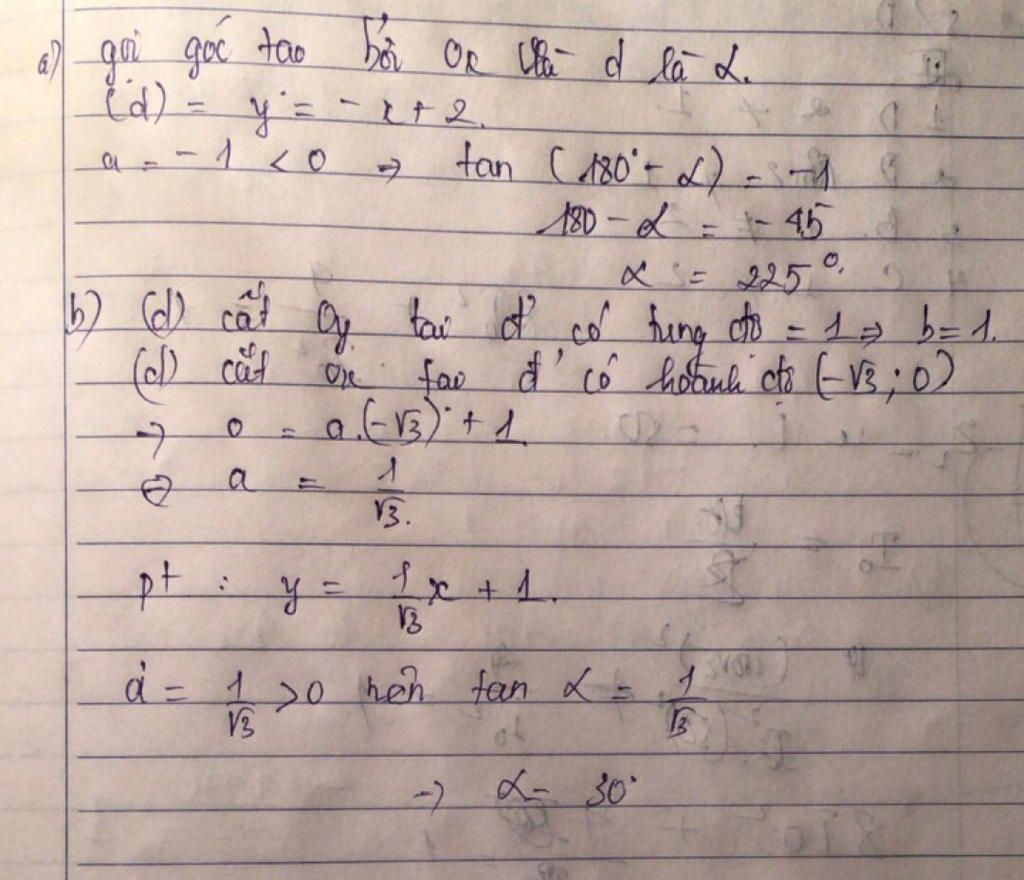 a) gọi góc tạo bởi Ox và d là α.
(d) = y = - x + 2.
a = - 1 < 0 → tan (180° - α) = -1
180 - α = - 45
α = 225°.
b) (d) cắt Oy tại đ' có tung độ = 1 ⇒ b = 1.
(d) cắt ox tại đ' có hoành độ (-√3 ; 0)
→ 0 = a.(-√3) + 1
⇔ a = 1/√3.
pt : y = 1/√3 x + 1.
a = 1/√3 > 0 nên tan α = 1/√3
→ α = 30°